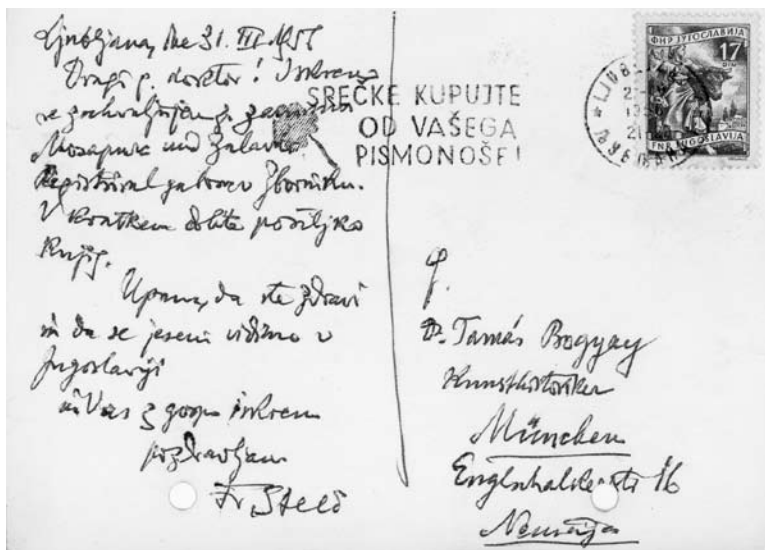 Ljubljana, dne 31. III. 1956
Dragi g. doktor! Iskreno
se zahvaljujem za
Mosapurc und Zalavár
Registriral ga bom v Zborniku.
V kratkem dobite pošiljko
knjig.
Upam, da ste zdravi
in da se jeseni vidimo v
Jugoslaviji
in Vas z gospo iskreno
pozdravljam
Fr. Stelè
SREČKE KUPUJTE
OD VAŠEGA
PISMONOŠE!
ФНР ЈУГОСЛАВИЈА
17
DIN
FNR JUGOSLAVIJA
G.
Dr. Tamás Bogyay
Kunsthistoriker
München
16
Nemčija